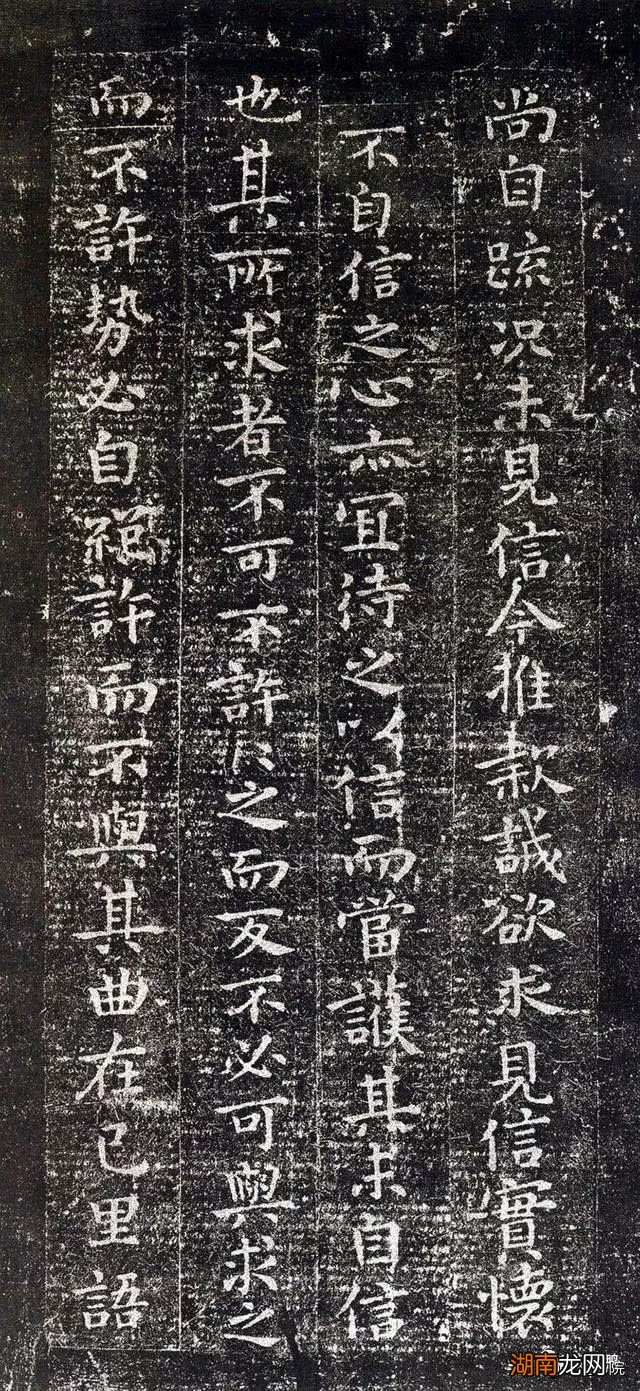 尚自疏况未見信今推款誠欲求見信實懷
不自信之心亦宜待之以信而當護其未自信
也其所求者不可不許〻之而反不必可與求之
而不許勢必自絕許而不與其曲在己里語
湖南龙网